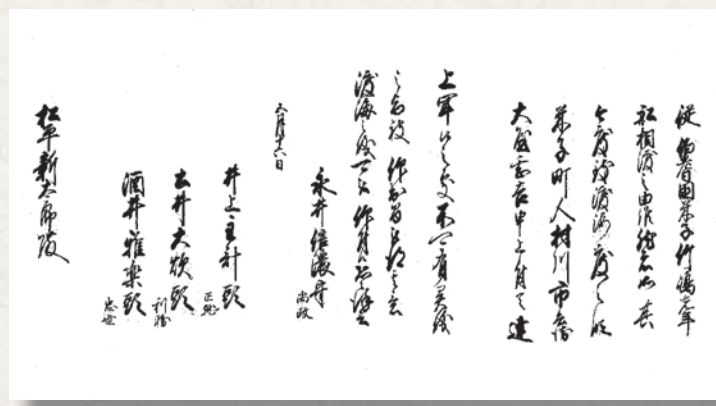 従伯耆国米子竹嶋江先年
船相渡之由候然者如其
今度致渡海度之段
米子町人村川市兵衛
大屋甚吉申上付而達
上聞候之処不可有異儀
之旨被仰出候間被得其意
渡海之儀可被仰付候恐々謹言
五月十六日
永井信濃守
尚政
井上主計頭
正就
土井大炊頭
利勝
酒井雅楽頭
忠世
松平新太郎殿